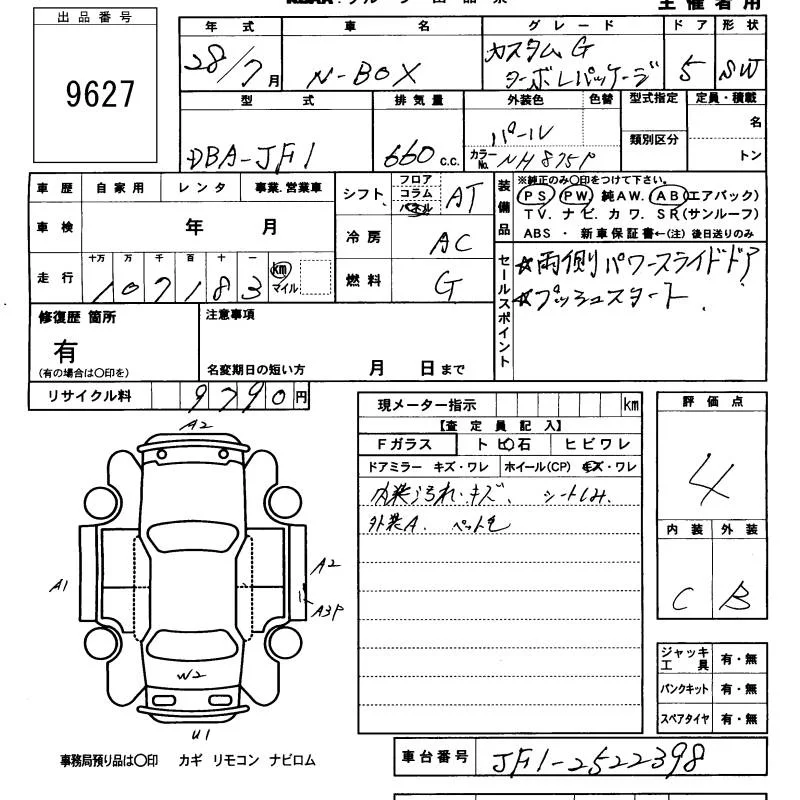 主催者用
出品番号
9627
年式 車名 グレード ドア 形状
28/7月 N-BOX カスタムG ターボLパッケージ 5 SW
型式 排気量 外装色 色替 型式指定 定員・積載
DBA-JF1 660 c.c. パール 類別区分 名
カラーNo. NH875P トン
車歴 自家用 レンタ 事業.営業車
車検 年 月
走行 十万 万 千 百 十 一
107183 km マイル
シフト フロア コラム パネル AT
冷房 AC
燃料 G
装備品 ※純正のみ○印をつけて下さい。
PS PW 純AW. AB(エアバック)
TV. ナビ. カワ. SR(サンルーフ)
ABS ・ 新車保証書←(注) 後日送りのみ
セールスポイント
☆両側パワースライドドア
☆プッシュスタート
修復歴 箇所
有
(有の場合は○印を)
注意事項
名変期日の短い方 月 日まで
リサイクル料 9790円
現メーター指示 km
【査定員記入】
Fガラス トビ石 ヒビワレ
ドアミラー キズ・ワレ ホイール(CP) キズ・ワレ
内装汚れ・キズ、シートしみ.
外装A. ペット毛
評価点
4
内装 外装
C B
A2
A1
A2
A3P
W2
U1
ジャッキ工具 有・無
パンクキット 有・無
スペアタイヤ 有・無
事務局預り品は○印 カギ リモコン ナビロム
車台番号 JF1-2522398